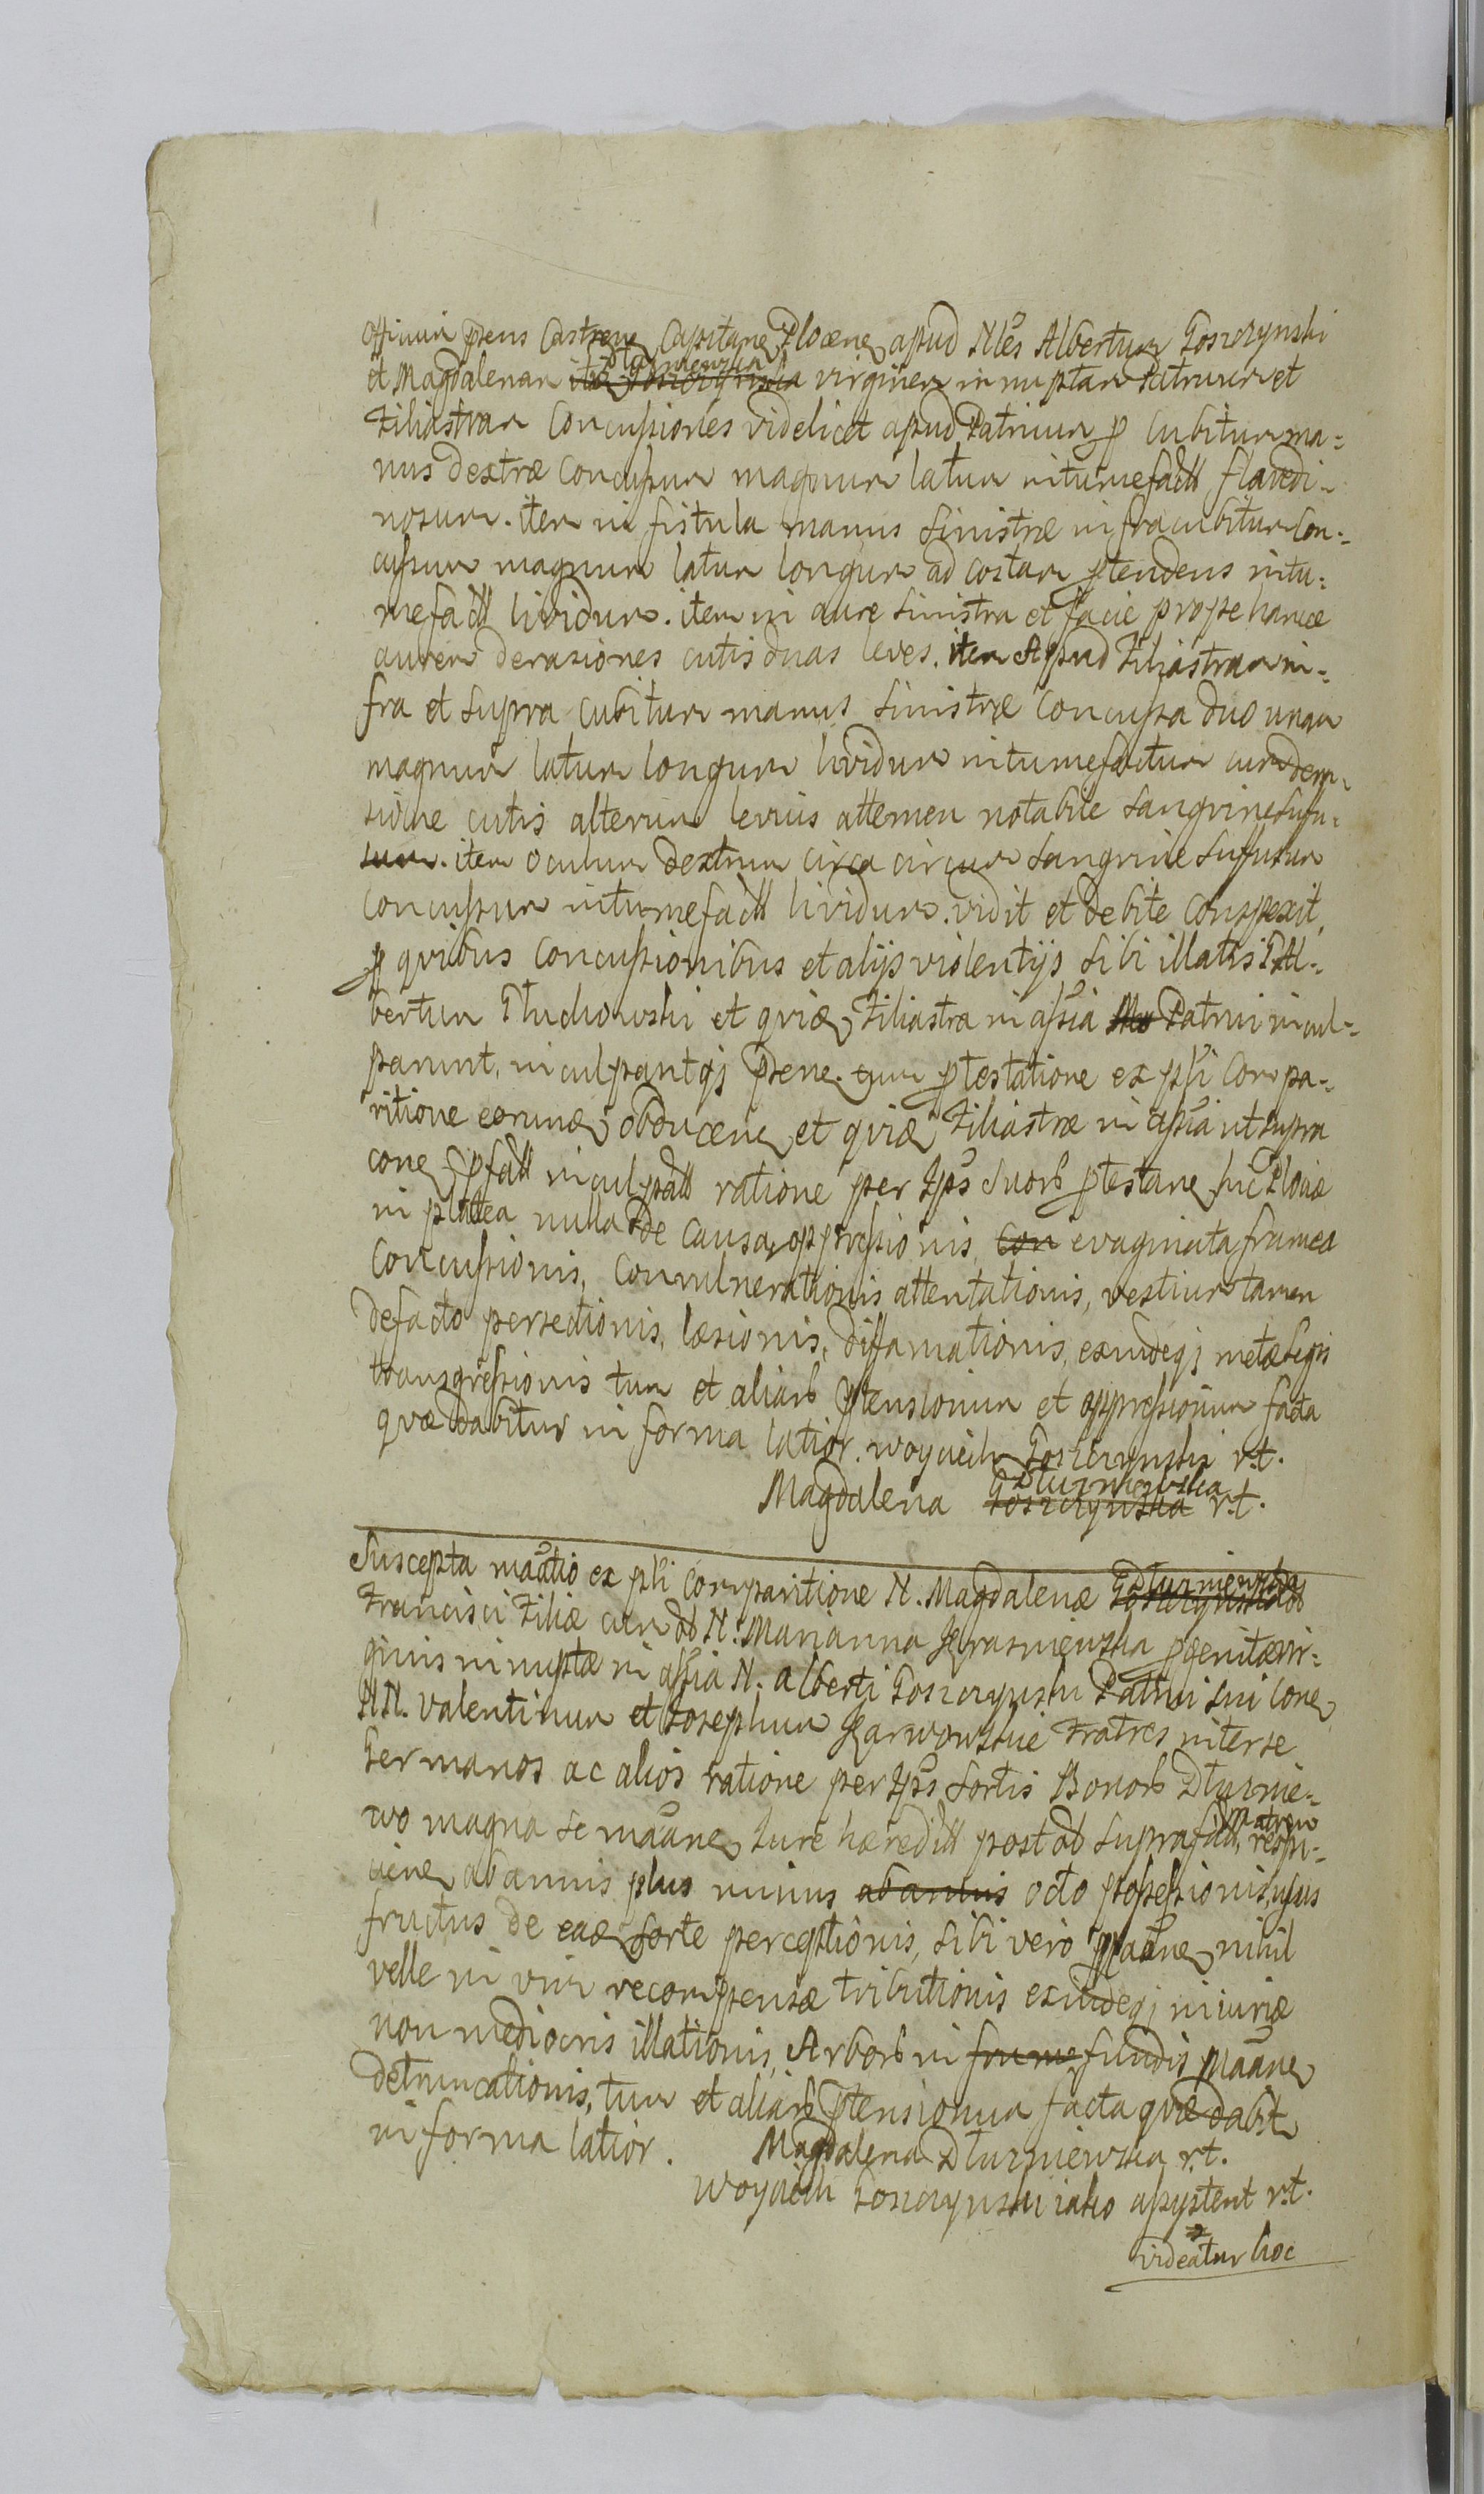 Officium p̄ens Castrene Capitane Plocene apud N̄les Albertum Goszczynski
et Magdalenam Dłuzniewska virginem innuptam Patruum et
Filiastram Concussiones videlicet apud Patruum p Cubitum ma=
nus dextræ Concussum magnum latum intumefactt flavedi=
nosum. item in fistula manus sinistræ infra cubitum Con=
cussum magnum latum longum ad costam ptendens intu=
mefactt lividum. item in aure sinistra et facie prope hance
aurem derasiones cutis duas leves. item Apud Filiastram in=
fra et supra cubitum manus sinistræ concussa duo unum
magnum latum longum lividum intumefactum cum dera=
sione cutis alterum levius attamen notabile sangvine sufu=
sum. item oculum dextrum circa circum sangvine suffusum
concussum intumefactt lividum. vidit et debite conspexit,
p qvibus Concussionibus et alijs violentijs sibi illatis G. Al=
bertum Głuchowski et qviæ Filiastra in assia Patrui incul=
parunt, inculpantqj p̄ene. cum ptestatione ex pli Compa=
ritione eorumæ obducene et qviæ Filiastræ in assia ut supra
cone p̄fatt inculpatt ratione per Ips̄ suorb ptestane hic Plociæ
in platea nulla de causa oppressionis, evaginata framea
concussionis, convulnerationis attentationis, vestium tamen
defacto persectionis, læsionis, diffamationis, exindeqj metæ legis
transgressionis tum et aliarb ptensionum et oppressionum facta
qvæ dabitur in forma latior. Woyciech Goszczynski r.t.
Magdalena Dłuzniewska r.t.
Suscepta ma͠atio ex pli Comparitione N. Magdalenæ Dłuzniewska
Francisci Filiæ cum ol N. Marianna Krasniewska pgenitæ vir=
ginis innuptæ in assia N. Alberti Goszczynski Patrui sui cone
NN. Valentinum et Josephum Karwowskie Fratres inter se
Germanos ac alios ratione per Ips̄ sortis Bonorb Dłuznie=
wo magna se ma͠ane Jure hæreditt post ol suprafatt, matrem respi=
ciene ab annis plus minus octo possessionis, usus
fructus de eaæ sorte perceptionis, sibi vero ma͠ane nihil
velle in vim recompensæ tributionis exindeqj injuriæ
non mediocris illationis, Arborb in fundis ma͠ane
detruncationis, tum et aliarb ptensionum facta qvæ dabit
in forma latior. Magdalena Dłuzniewska r.t.
Woyciech Goszczynski iako assystent r.t.
videatur hoc